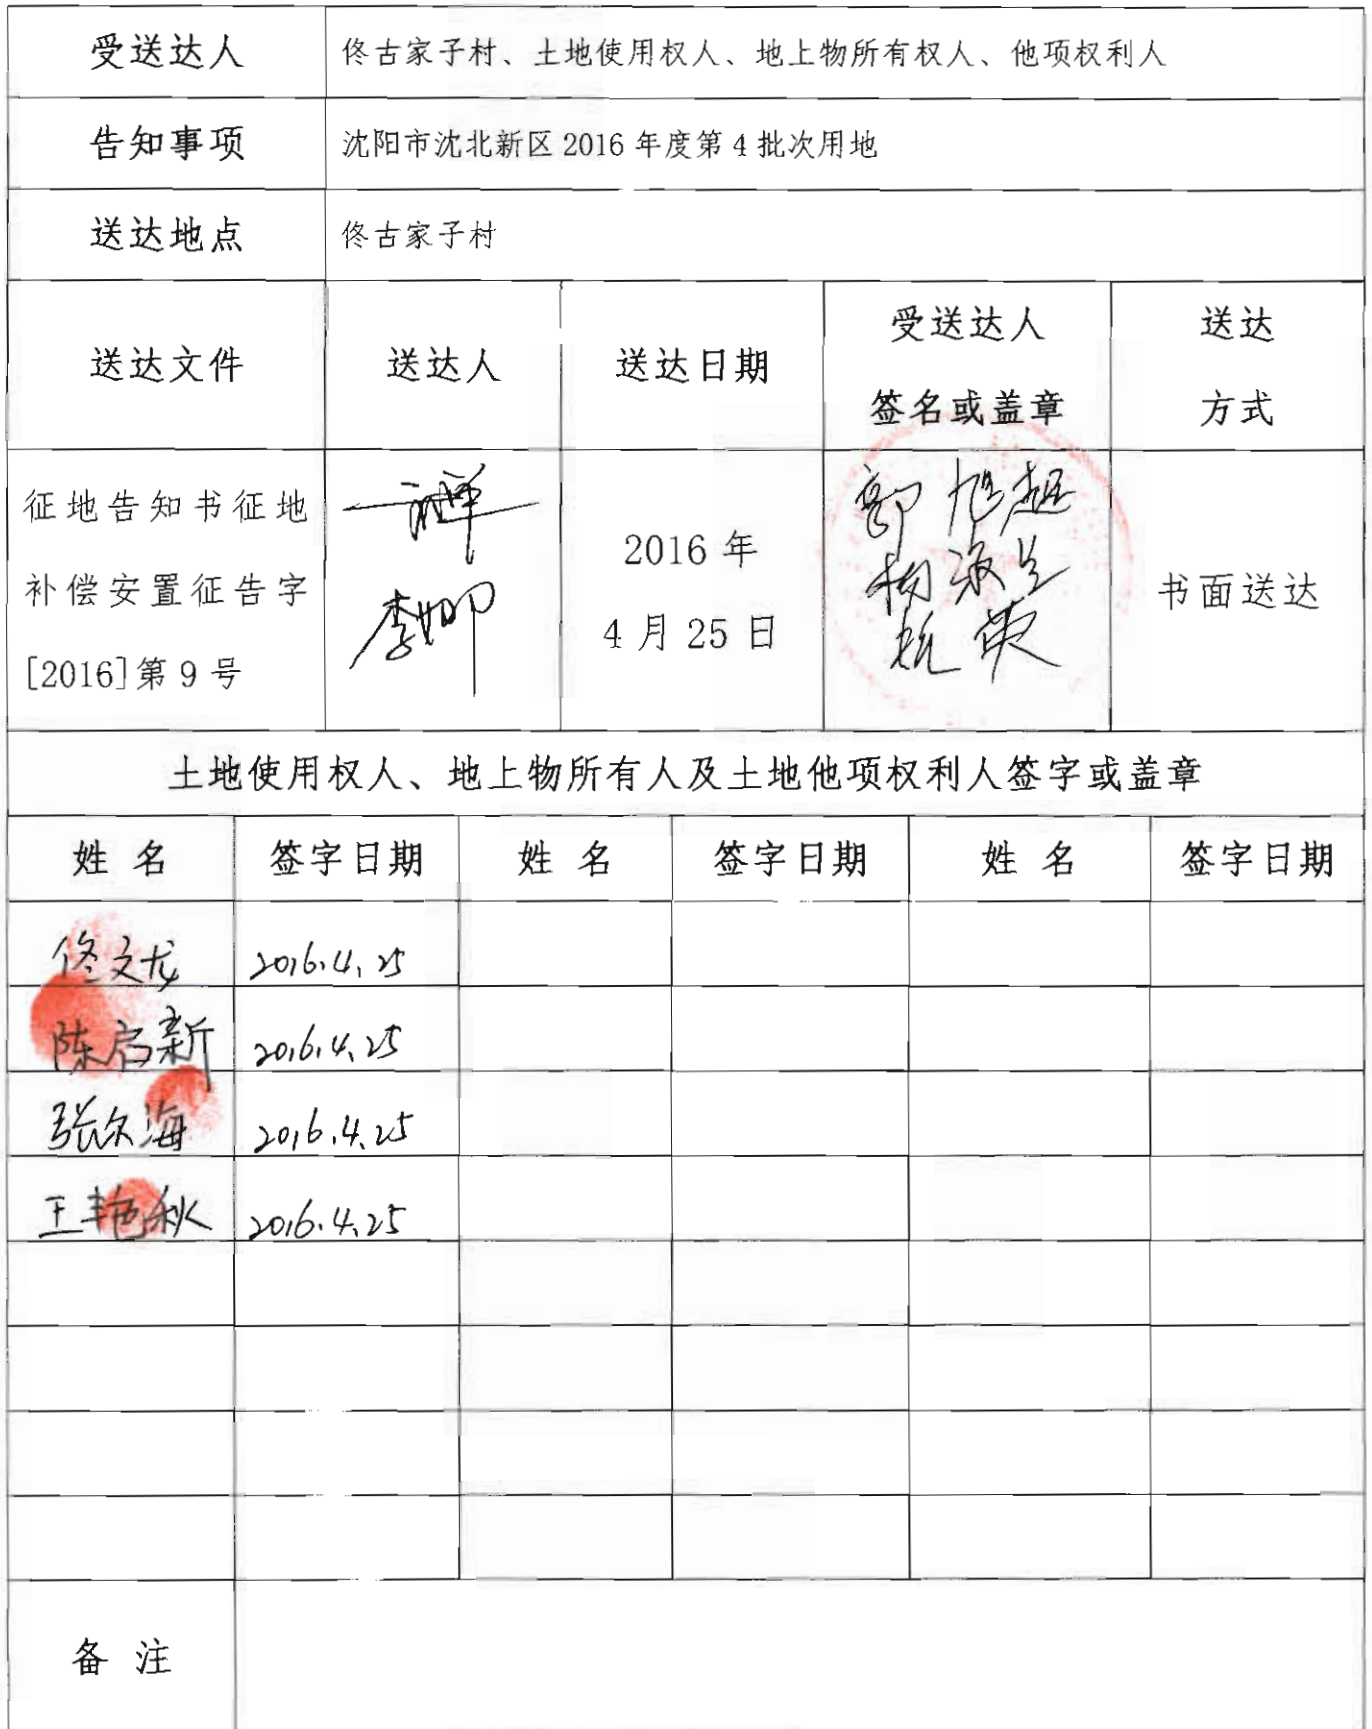 受送达人 佟古家子村、土地使用权人、地上物所有权人、他项权利人
告知事项 沈阳市沈北新区 2016 年度第 4 批次用地
送达地点 佟古家子村
送达文件 送达人 送达日期 受送达人 签名或盖章 送达 方式
征地告知书征地
补偿安置征告字
[2016]第 9 号
李娜
2016 年
4 月 25 日
郭旭超
杭英
书面送达
土地使用权人、地上物所有人及土地他项权利人签字或盖章
姓 名 签字日期 姓 名 签字日期 姓 名 签字日期
佟文龙 2016.4.25
陈启新 2016.4.25
张尔海 2016.4.25
王艳秋 2016.4.25
备 注